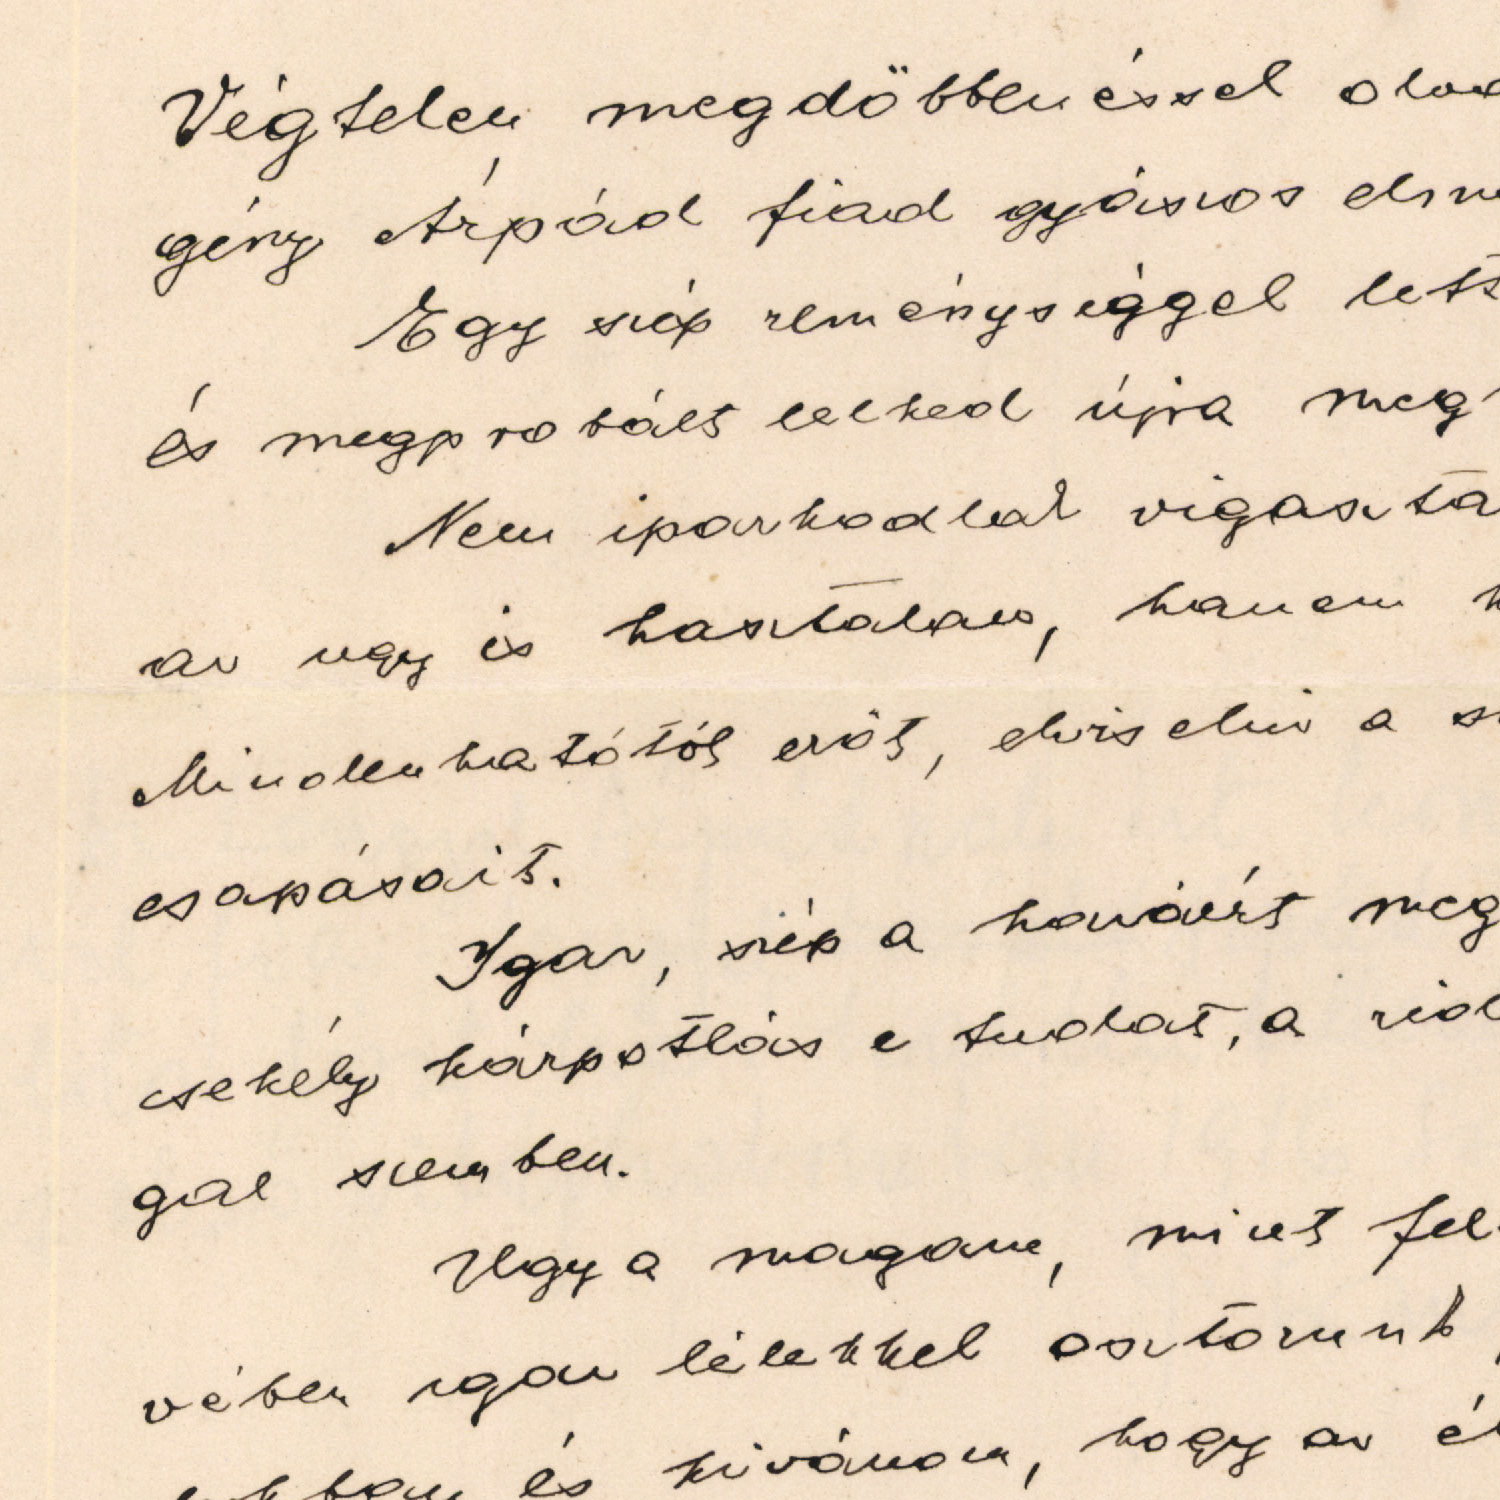 Végtelen megdöbbenéssel olvad
gény Árpád fiad gyászos elm
Egy szép reménységgel lett
és megprobált lelked újra meg
Nem iparkodlak vigaszta
az ugy is hasztalan, hanem
Mindenhatótól erőt, elviselni a
csapásait.
Igaz, szép a hazáért meg
csekély kárpótlás e tudat, a rid
gal szemben.
Ugy a magam, mint fel
vében igaz lélekkel osztozunk
és kivánom, hogy az él